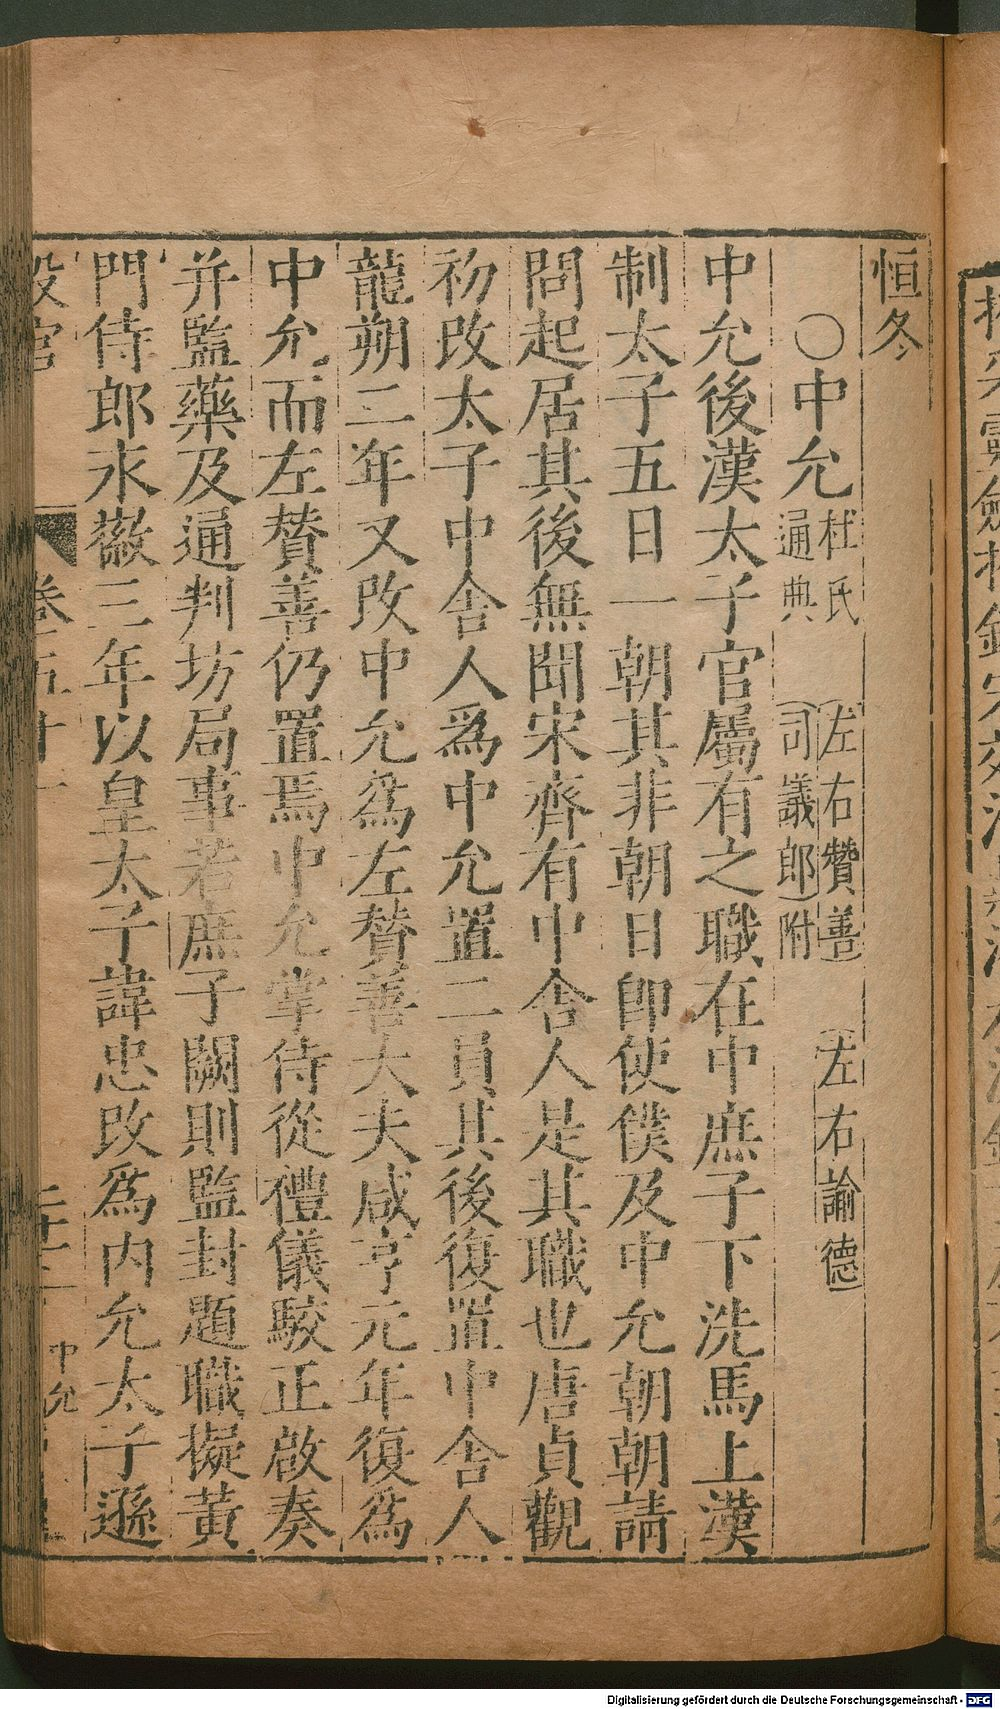 恒冬
〇中允杜氏通典 左右贊善司議郎附 左右諭德
中允後漢太子官屬有之職在中庶子下洗馬上漢
制太子五日一朝其非朝日即使僕及中允朝朝請
問起居其後無聞宋齊有中舍人是其職也唐貞觀
初改太子中舍人爲中允置二員其後復置中舍人
龍朔二年又改中允爲左賛善大夫咸亨元年復爲
中允而左賛善仍置焉中允掌侍從禮儀駮正啟奏
并監藥及通判坊局事若庶子闕則監封題職擬黃
門侍郎永徽三年以皇太子諱忠改爲内允太子遜
設官 卷五十 中允
Digitalisierung gefördert durch die Deutsche Forschungsgemeinschaft - DFG